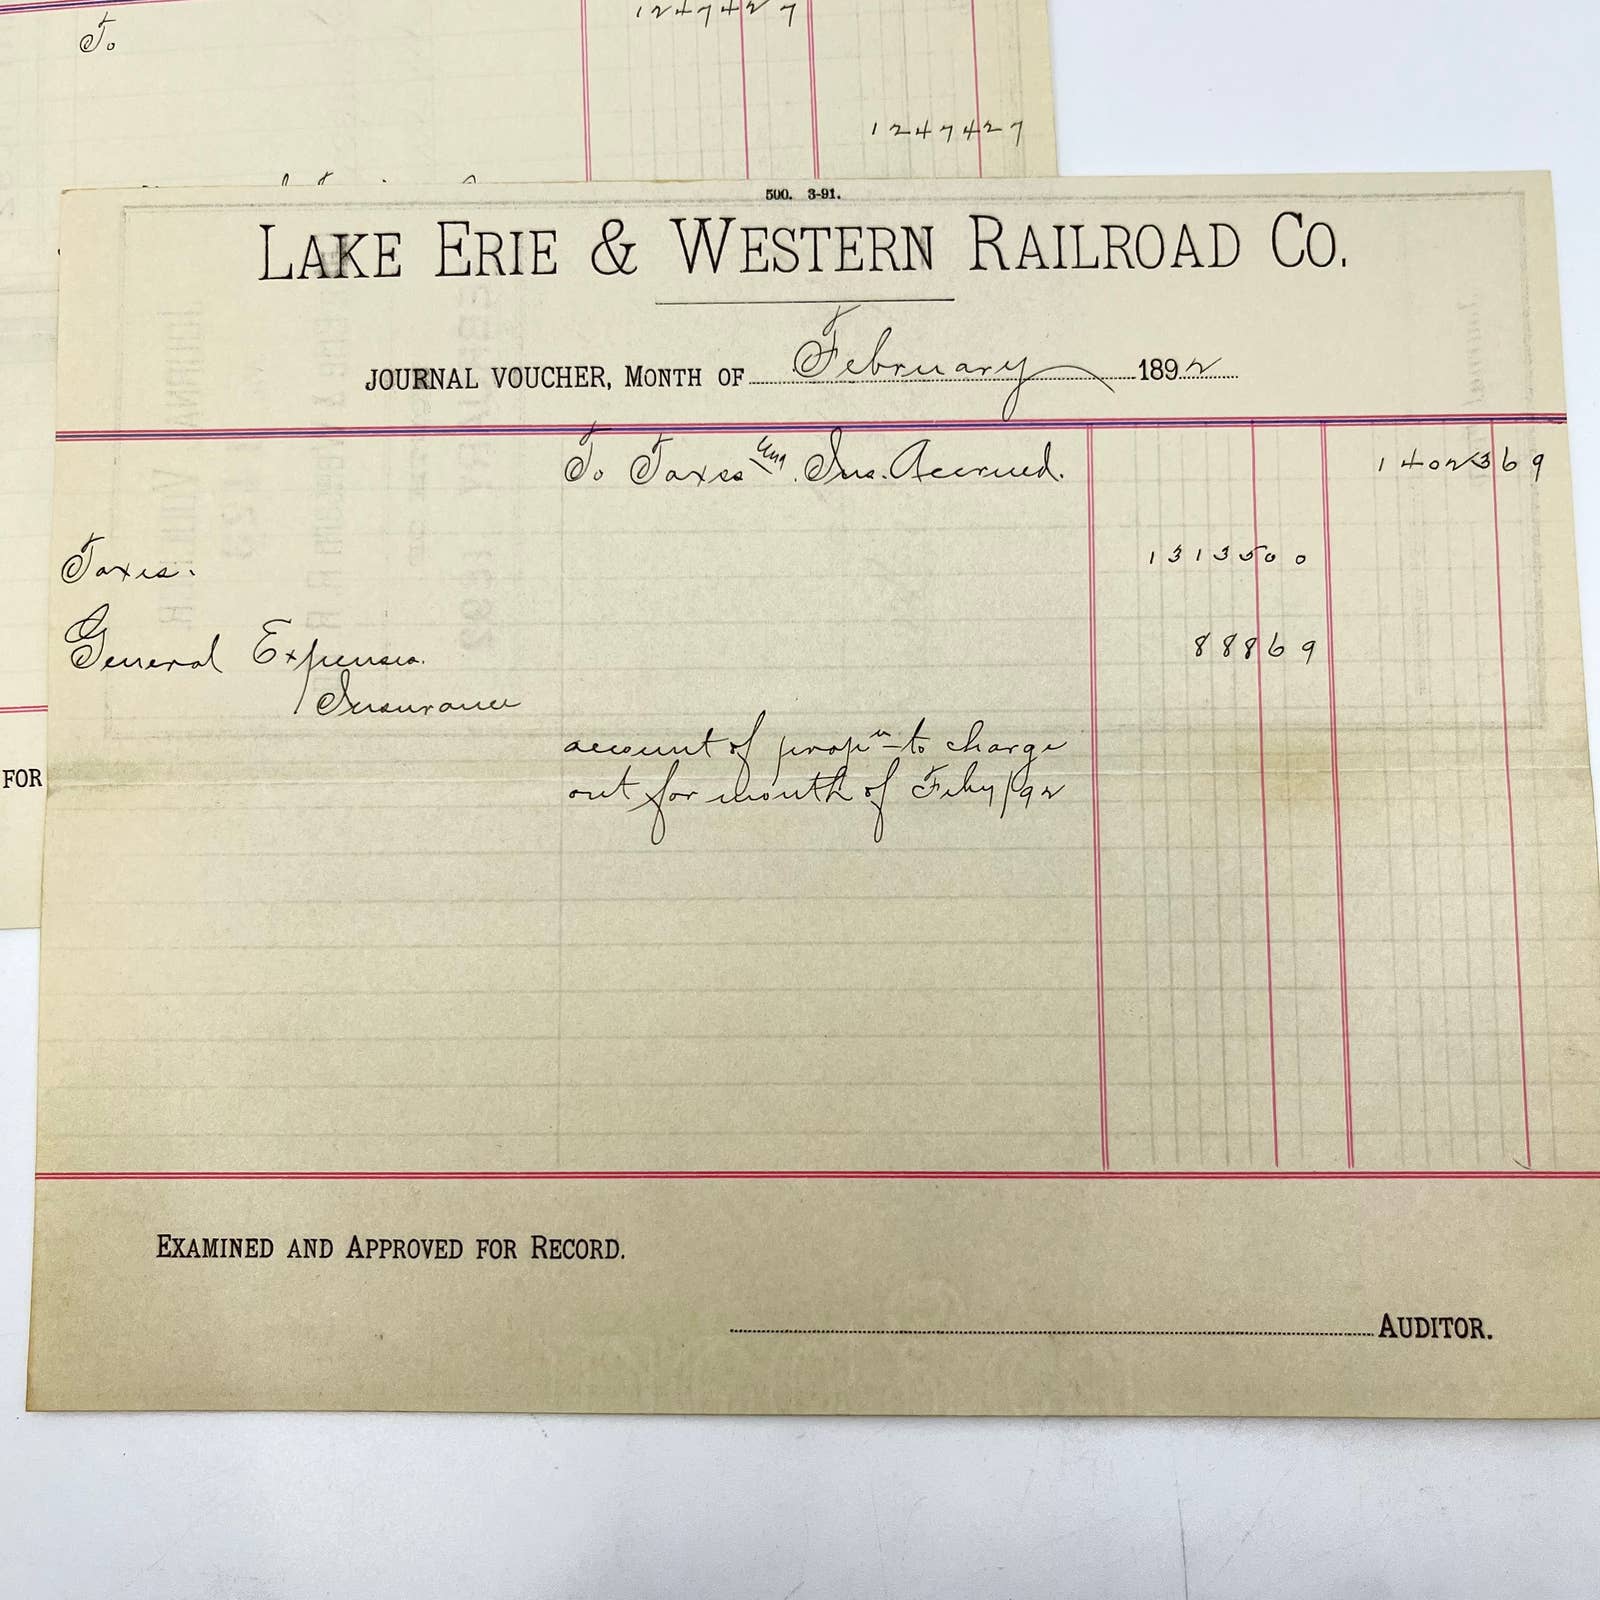 1247427
To
1247427
FOR
500. 3-91.
LAKE ERIE & WESTERN RAILROAD CO.
JOURNAL VOUCHER, MONTH OF February 1892
To Taxes and Ins. Accrued. 1402369
Taxes. 1313500
General Expenses. 88869
Insurance
account of prop^n to charge
out for month of Feby/92
EXAMINED AND APPROVED FOR RECORD.
AUDITOR.